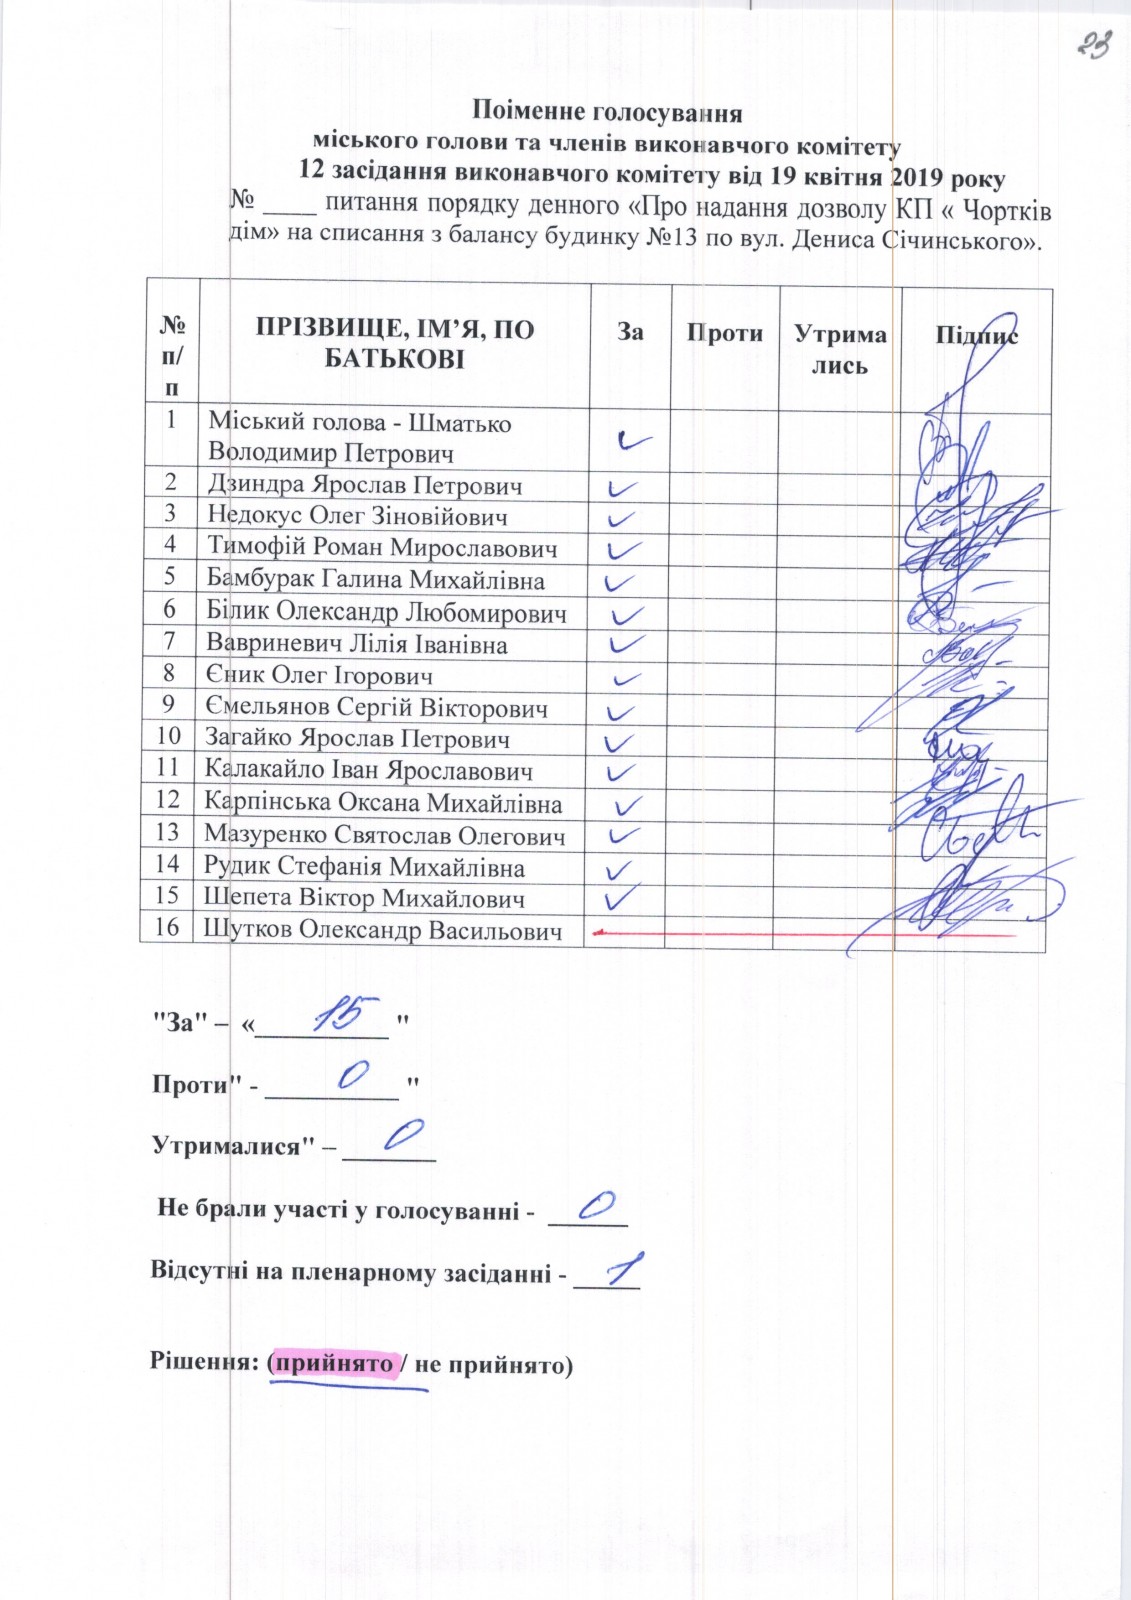 23
Поіменне голосування
міського голови та членів виконавчого комітету
12 засідання виконавчого комітету від 19 квітня 2019 року
№ ____ питання порядку денного «Про надання дозволу КП « Чортків
дім» на списання з балансу будинку №13 по вул. Дениса Січинського».
№ п/п ПРІЗВИЩЕ, ІМ’Я, ПО БАТЬКОВІ За Проти Утрима лись Підпис
1 Міський голова - Шматько
Володимир Петрович
2 Дзиндра Ярослав Петрович
3 Недокус Олег Зіновійович
4 Тимофій Роман Мирославович
5 Бамбурак Галина Михайлівна
6 Білик Олександр Любомирович
7 Вавриневич Лілія Іванівна
8 Єник Олег Ігорович
9 Ємельянов Сергій Вікторович
10 Загайко Ярослав Петрович
11 Калакайло Іван Ярославович
12 Карпінська Оксана Михайлівна
13 Мазуренко Святослав Олегович
14 Рудик Стефанія Михайлівна
15 Шепета Віктор Михайлович
16 Шутков Олександр Васильович
"За" – « 15 "
Проти" - 0 "
Утрималися" – 0
Не брали участі у голосуванні - 0
Відсутні на пленарному засіданні - 1
Рішення: (прийнято / не прийнято)